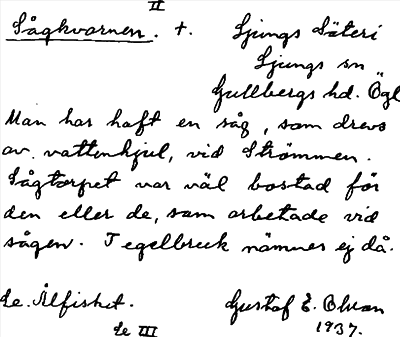 II
Sågkvarnen. +. Ljungs Säteri
Ljungs sn
Gullbergs hd. Ögl
Man har haft en såg, som drevs
av vattenhjul, vid Strömmen.
Sågtorpet var väl bostad för
den eller de, som arbetade vid
sågen. Tegelbruk nämnes ej då.
Se. Ålfisket. Gustaf E. Olsson
Se III 1937.